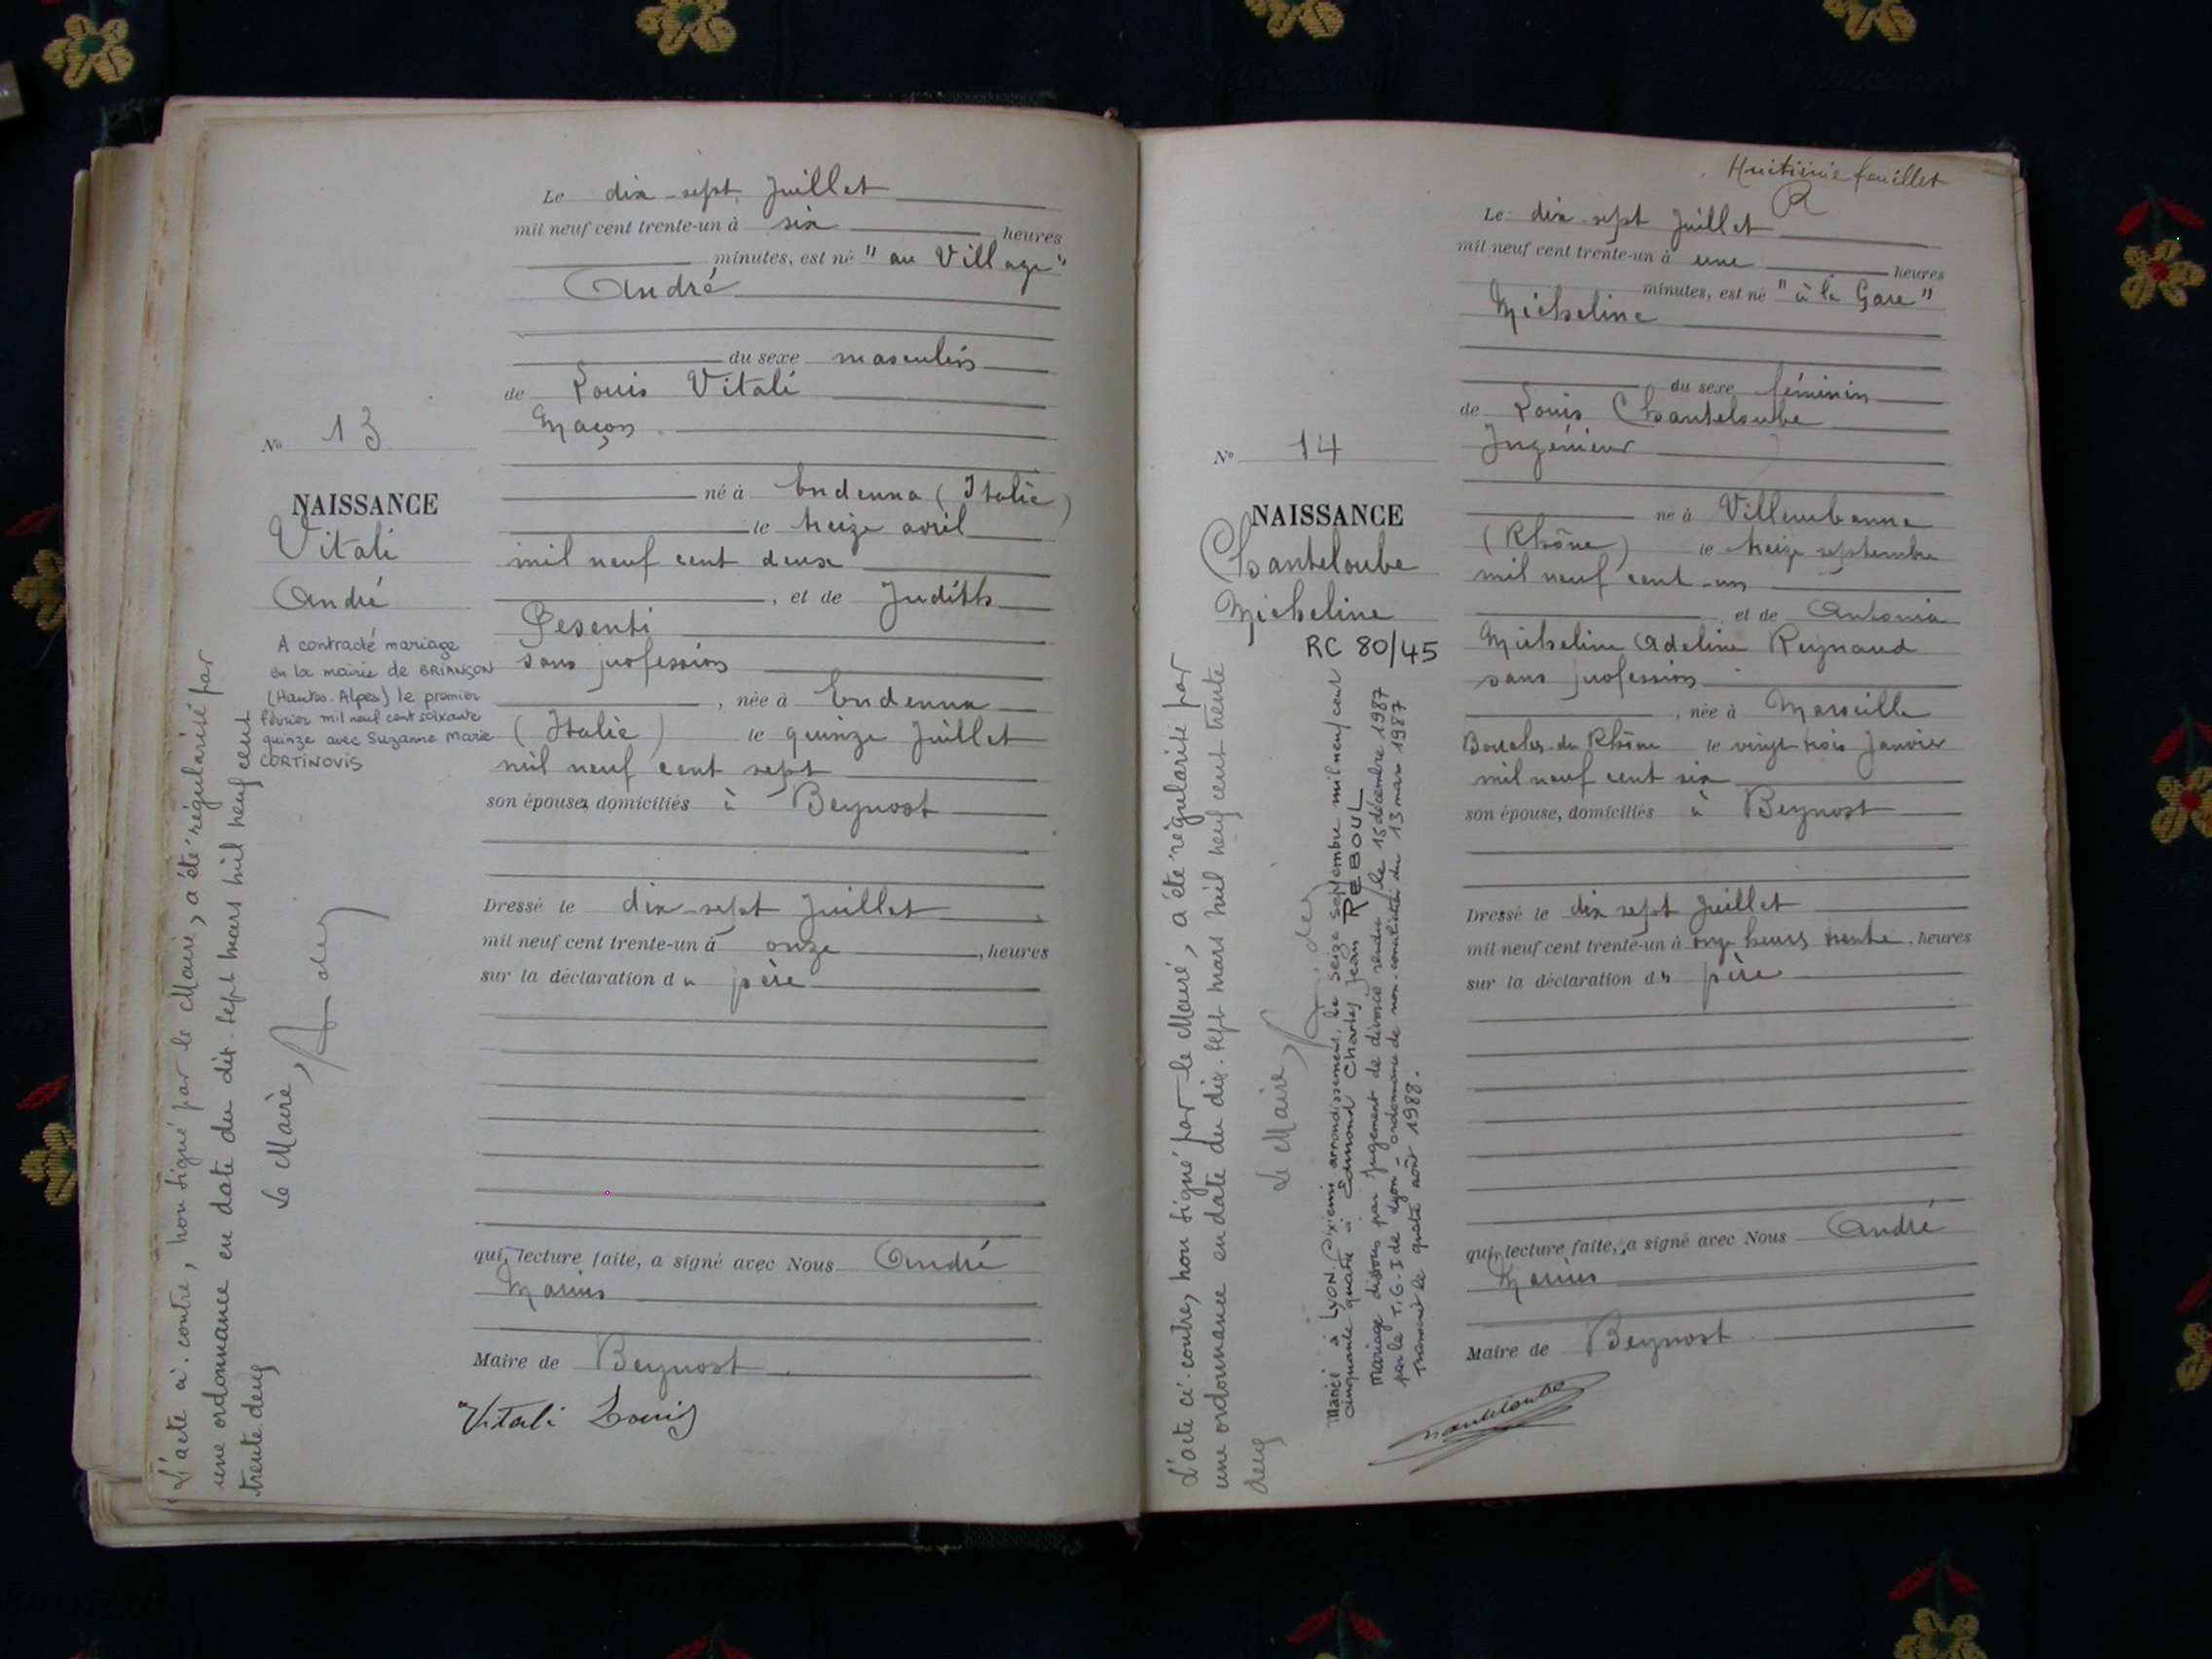 Le dix-sept Juillet
mil neuf cent trente-un à six heures
minutes, est né "au Village"
André
du sexe masculin
de Louis Vitali
Maçon
né à Endenna (Italie)
le treize avril
mil neuf cent deux
, et de Judith
Pesenti
sans profession
, née à Endenna
(Italie) le quinze Juillet
mil neuf cent sept
son épouse, domiciliés à Beynost
Dressé le dix-sept Juillet
mil neuf cent trente-un à onze, heures
sur la déclaration du père
qui, lecture faite, a signé avec Nous André
Marius
Maire de Beynost
Vitali Louis
No 13
NAISSANCE
Vitali
André
A contracté mariage
en la mairie de BRIANÇON
(Hautes-Alpes) le premier
février mil neuf cent soixante
quinze avec Suzanne Marie
CORTINOVIS
L'acte ci-contre, non signé par le Maire, a été régularisé par
une ordonnance en date du dix-sept mars mil neuf cent
trente deux
Le Maire,
Huitième feuillet
R
Le dix-sept Juillet
mil neuf cent trente-un à une heures
minutes, est né "à la Gare"
Micheline
du sexe féminin
de Louis Chanteloube
Ingénieur
né à Villeurbanne
(Rhône) le treize septembre
mil neuf cent un
et de Antonia
Micheline Adeline Reynaud
sans profession
, née à Marseille
Bouches-du-Rhône le vingt trois Janvier
mil neuf cent six
son épouse, domiciliés à Beynost
Dressé le dix sept Juillet
mil neuf cent trente-un à onze heures trente, heures
sur la déclaration du père
qui, lecture faite, a signé avec Nous André
Marius
Maire de Beynost
Chanteloube
No 14
NAISSANCE
Chanteloube
Micheline
RC 80/45
L'acte ci-contre, non signé par le Maire, a été régularisé par
une ordonnance en date du dix-sept mars mil neuf cent trente
deux
Le Maire,
Mariée à LYON sixième arrondissement, le seize septembre mil neuf cent
cinquante quatre à Edmond Charles Jean REBOUL
Mariage dissous par Jugement de divorce rendu le 15 décembre 1987
par le T.G.I de Lyon - ordonnance de non-conciliation du 13 mars 1987
Transcrit le quatre août 1988.